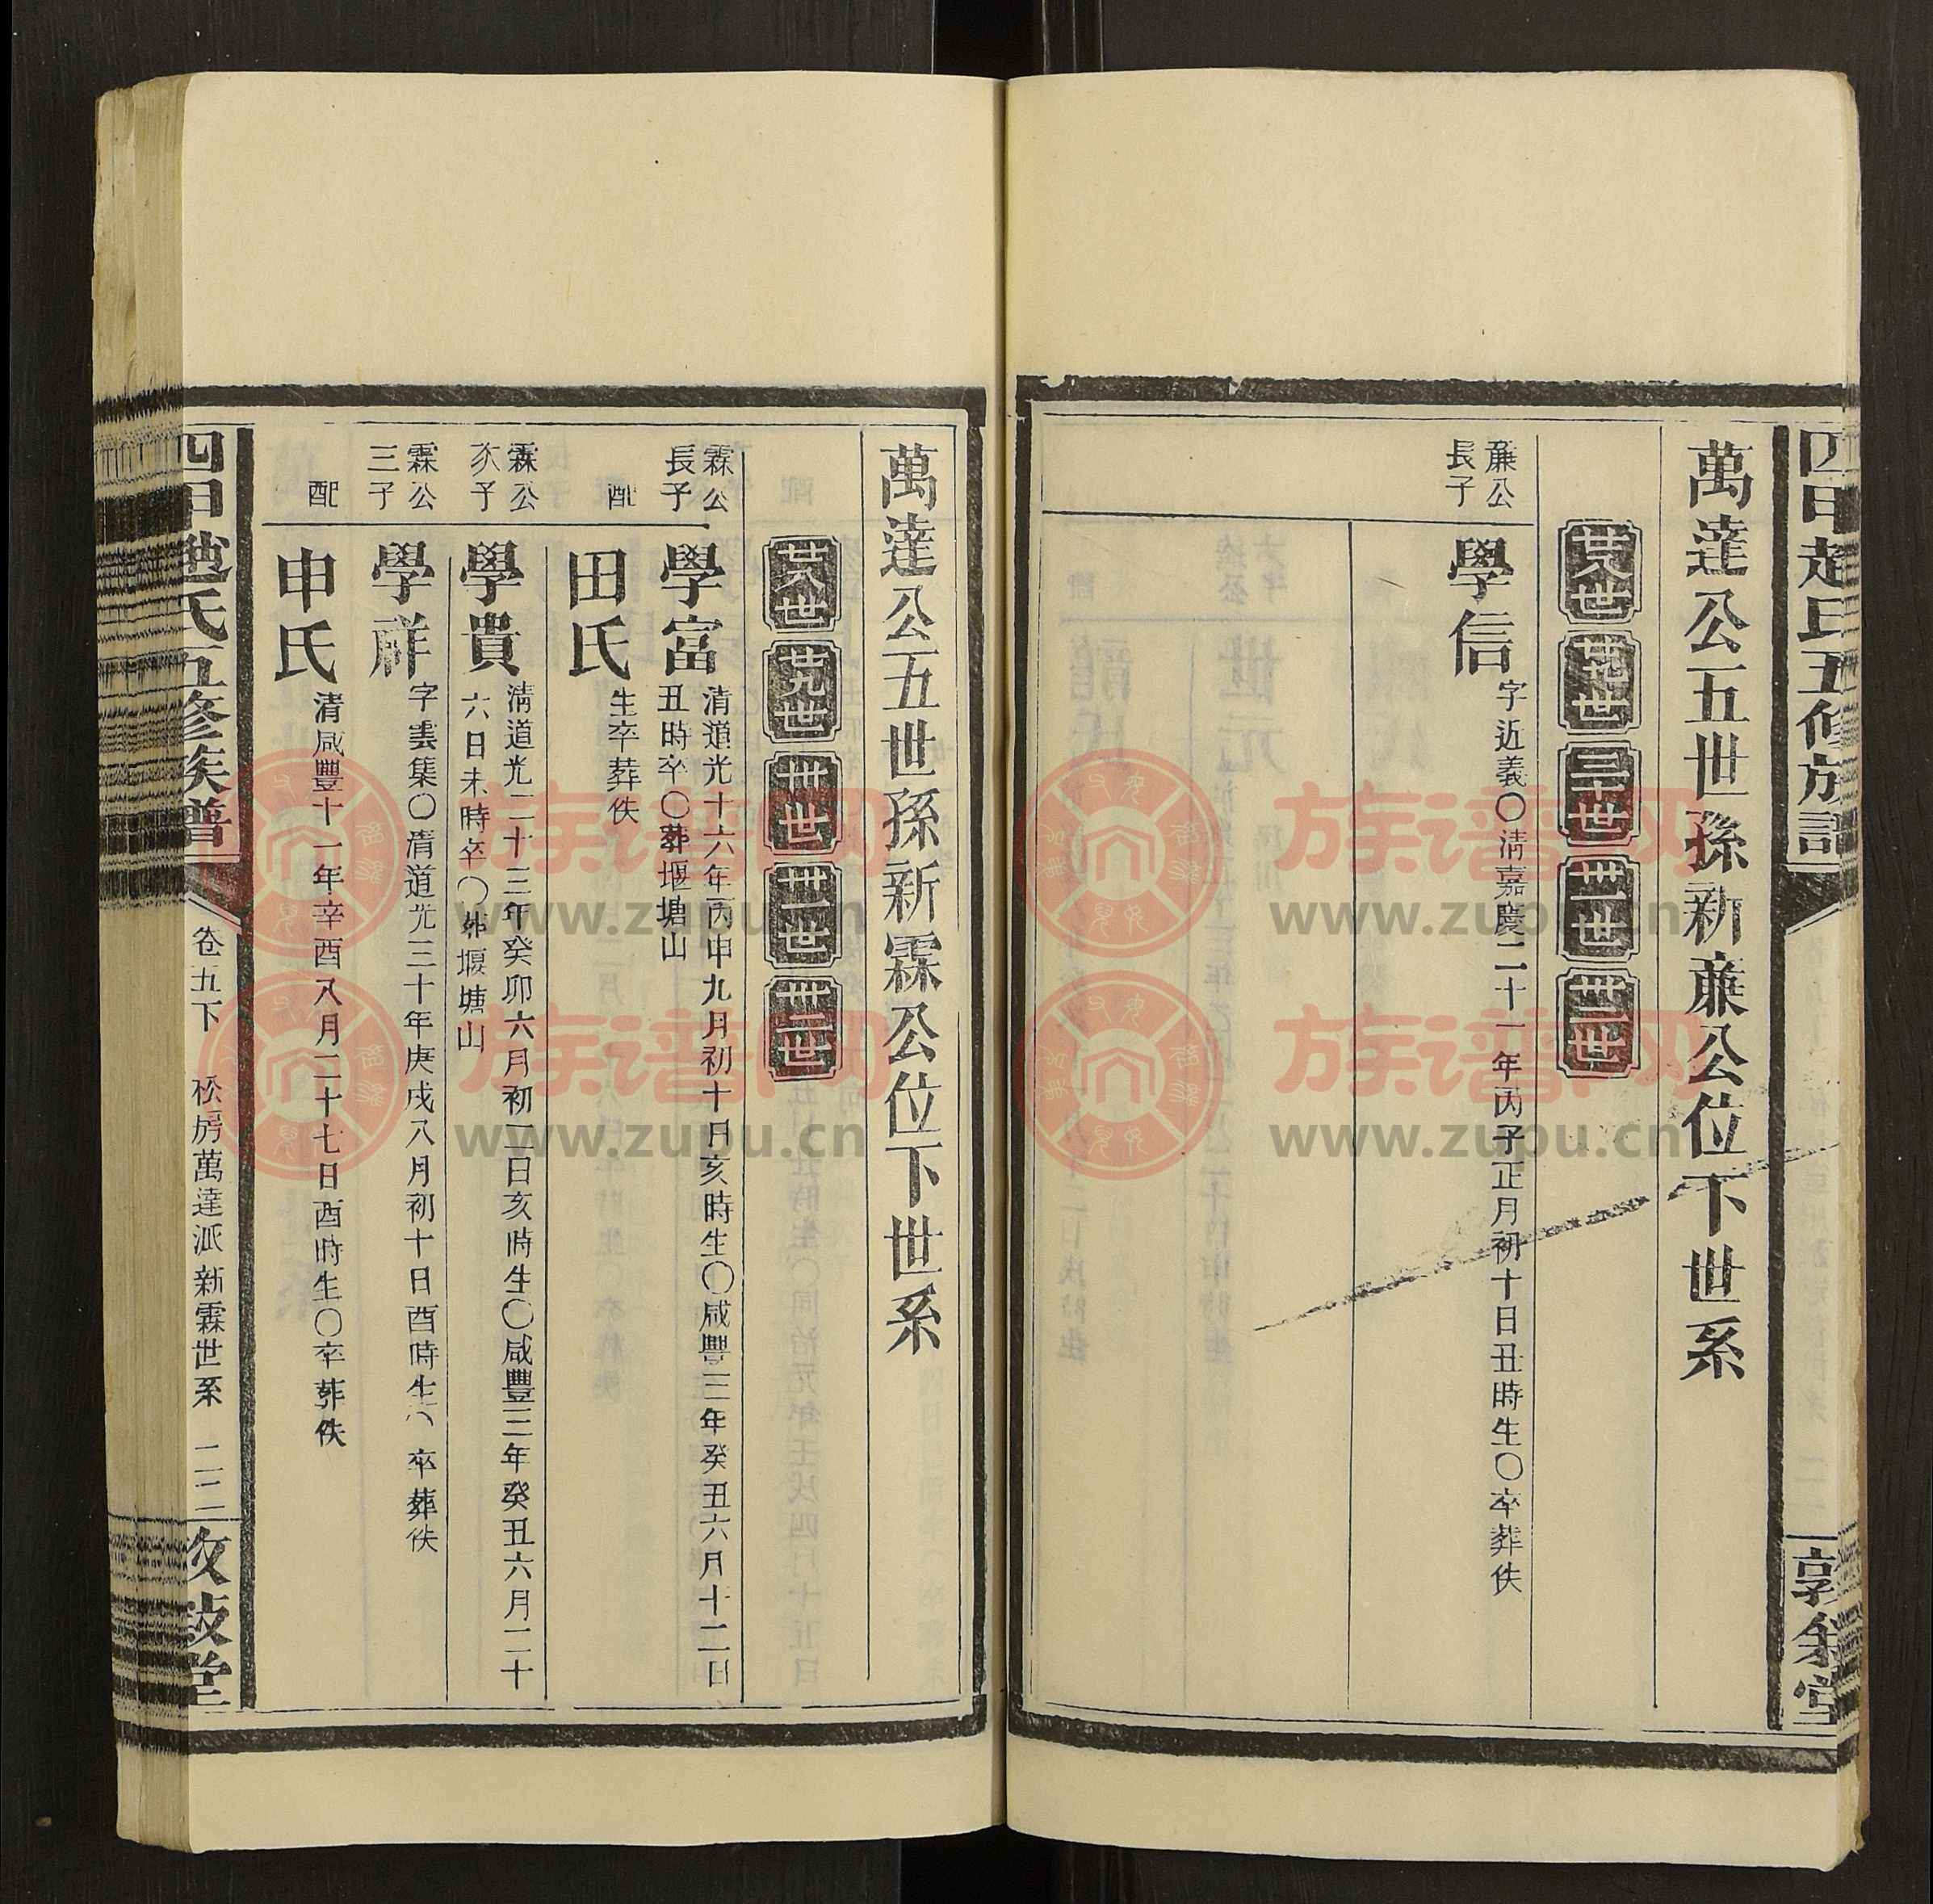 四甲趙氏五修族譜
敦叙堂
萬達公五世孫新亷公位下世系
廿八世 廿九世 三十世 卅一世 卅二世
亷公長子
學信 字近義〇清嘉慶二十一年丙子正月初十日丑時生〇卒葬佚
萬達公五世孫新霖公位下世系
廿八世 廿九世 卅世 卅一世 卅二世
霖公長子
學富 清道光十六年丙申九月初十日亥時生〇咸豐三年癸丑六月十二日
丑時卒〇葬堰塘山
配
田氏 生卒葬佚
霖公次子
學貴 清道光二十三年癸卯六月初二日亥時生〇咸豐三年癸丑六月二十
六日未時卒〇葬堰塘山
霖公三子
學祥 字雲集〇清道光三十年庚戌八月初十日酉時生〇卒葬佚
配
申氏 清咸豐十一年辛酉八月二十七日酉時生〇卒葬佚
四甲趙氏五修族譜
卷五下 松房萬達派新霖世系 二二
敦叙堂
族谱网
www.zupu.cn
族谱网
www.zupu.cn
族谱网
www.zupu.cn
族谱网
www.zupu.cn